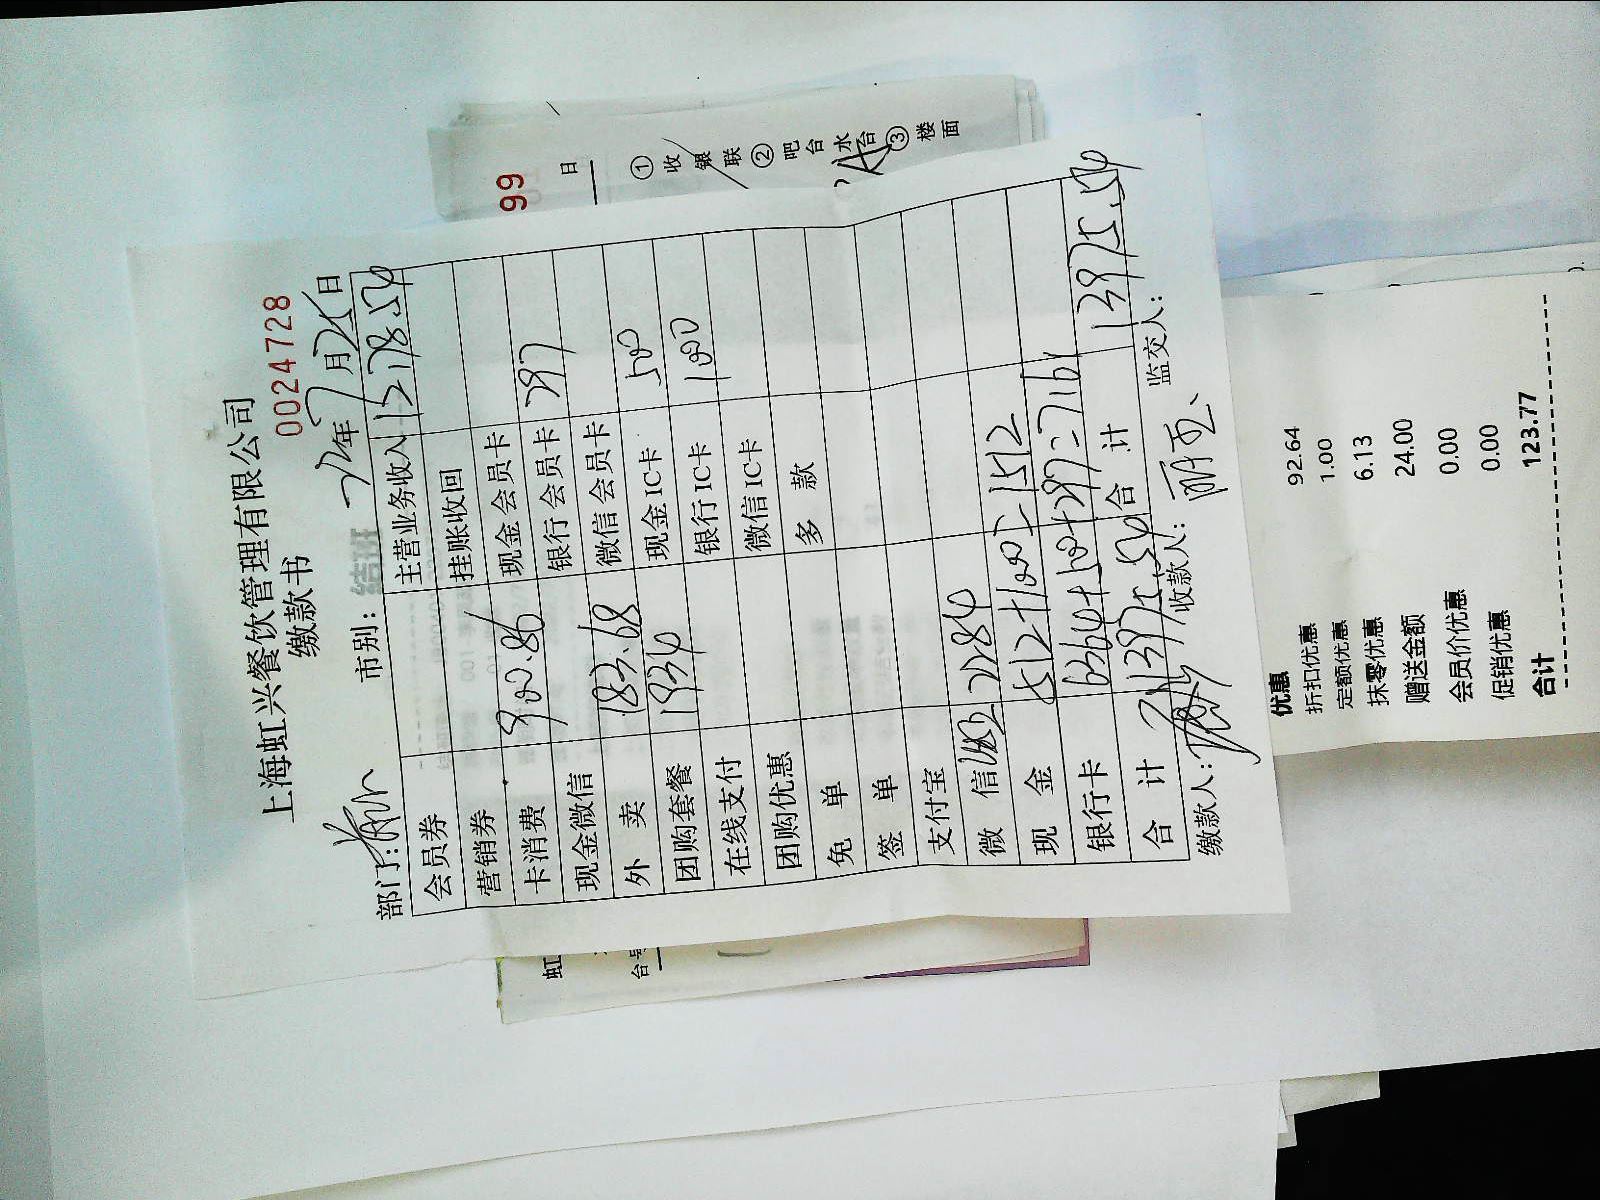 上海虹兴餐饮管理有限公司
缴款书
0024728
部门: 市别: 年7月25日
主营业务收入 12178.54
会员券 挂账收回
营销券 现金会员卡
卡消费 900.86 银行会员卡 297
现金微信 微信会员卡
外 卖 183.68 现金IC卡 500
团购套餐 1934 银行IC卡 1000
在线支付 微信IC卡
团购优惠 多 款
免 单
签 单
支付宝
微 信 2284
现 金 512+1000=1512
银行卡 6364+500+297=7161
合 计 13975.54 合 计 13975.54
缴款人: 收款人: 监交人:
99
日
①收银联 ②吧台水台 ③楼面
虹
台号
结班
优惠
折扣优惠 92.64
定额优惠 1.00
抹零优惠 6.13
赠送金额 24.00
会员价优惠 0.00
促销优惠 0.00
合计 123.77